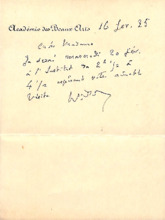 Académie des Beaux-Arts 16 fev. 25
Chère Madame
Je serai mercredi 20 fév.
à l'Institut de 2h 1/2 à
4h 1/2 espérant votre aimable
visite